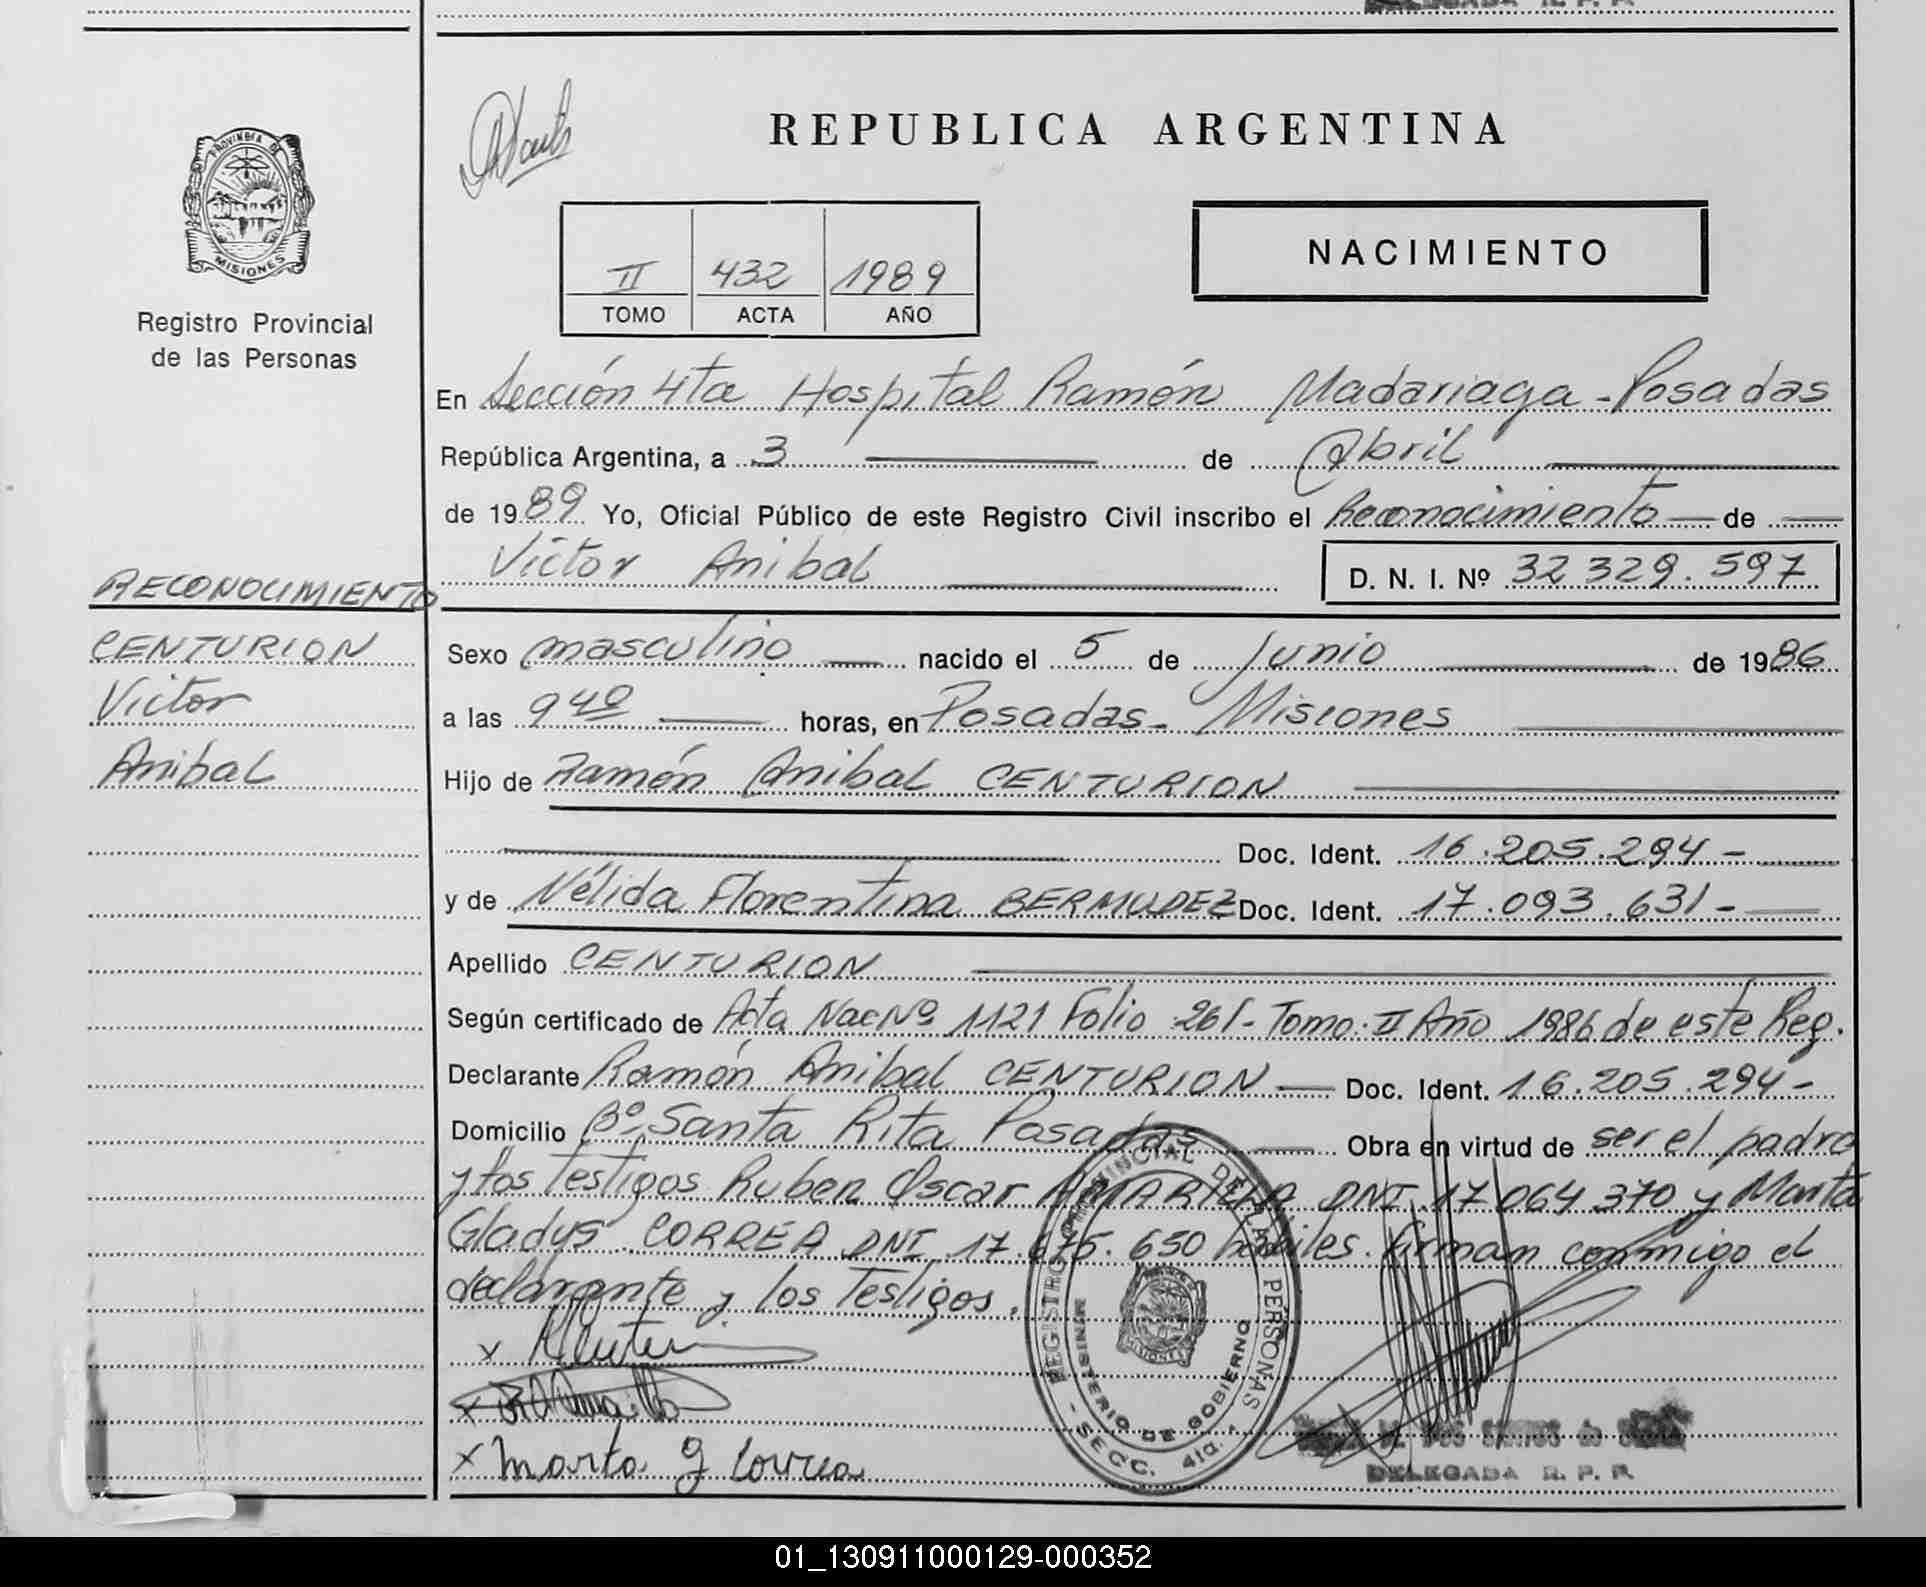 REPUBLICA ARGENTINA
PROVINCIA DE
MISIONES
Registro Provincial
de las Personas
II 432 1989
TOMO ACTA AÑO
NACIMIENTO
En Sección 4ta Hospital Ramón Madariaga - Posadas
República Argentina, a 3 de Abril
de 1989 Yo, Oficial Público de este Registro Civil inscribo el Reconocimiento de
Victor Anibal D. N. I. Nº 32 329.597
RECONOCIMIENTO
CENTURION
Victor
Anibal
Sexo masculino nacido el 5 de Junio de 1986
a las 9 40 horas, en Posadas - Misiones
Hijo de Ramón Anibal CENTURION
Doc. Ident. 16.205.294 -
y de Nélida Florentina BERMUDEZ Doc. Ident. 17.093.631 -
Apellido CENTURION
Según certificado de Acta Nac Nº 1121 Folio 261 - Tomo II Año 1986 de este Reg.
Declarante Ramón Anibal CENTURION Doc. Ident. 16.205.294 -
Domicilio Bº Santa Rita Posadas Obra en virtud de ser el padre
y los Testigos Ruben Oscar AMARILLA DNI 17 064 370 y Marta
Gladys CORREA DNI 17.675.650 hábiles. firman conmigo el
declarante y los Testigos.
x
x
x Marta G Correa
REGISTRO PROVINCIAL DE LAS PERSONAS
MINISTERIO DE GOBIERNO
- SECC. 4ta. -
MISIONES
DELEGADA R. P. P.
01_130911000129-000352